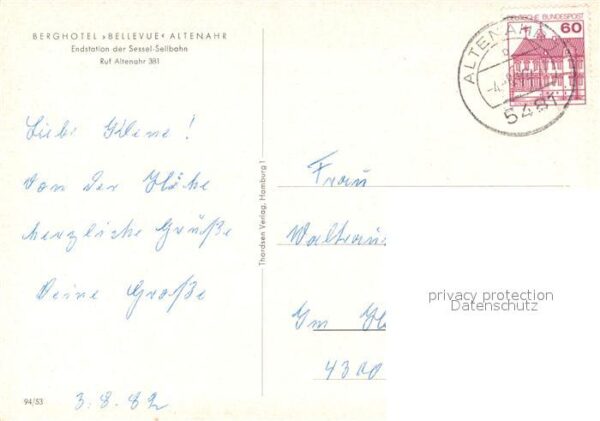 BERGHOTEL »BELLEVUE« ALTENAHR
Endstation der Sessel-Seilbahn
Ruf Altenahr 381
DEUTSCHE BUNDESPOST
60
ALTENAHR
5481
Liebe Kleine!
Von der Höhe
herzliche Grüße
Deine Große
3.8.82
94/53
Thordsen Verlag, Hamburg 1
Frau
Waltrau
Im
4300
privacy protection
Datenschutz